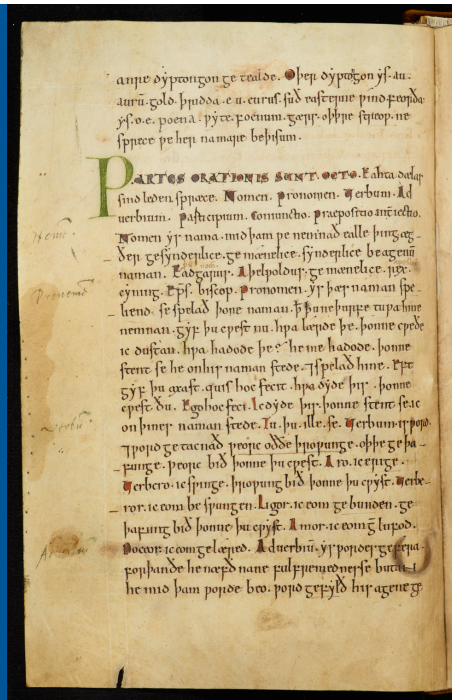 anre dyptongon ge tealde. Oþer dyptongon ys. au.
aurū. gold. þridda. e u. eurus. suð easterne wind. feorða
ys. o e. poena. wyte. foenum. gærs. oþþe streow. ne
sprece we her na mare be þisum.
PARTES ORATIONIS SUNT OCTO. Eahta dælas
sind leden spræce. Nomen. Pronomen. Uerbum. Ad
uerbium. Participium. Coniunctio. Praepositio. interiectio.
Nomen ys nama. mid þam we nemnað ealle þing. æg
ðer ge synderlice. ge mænelice. synderlice be agenū
naman. Eadgarus. Aþelwoldus. ge mænelice. rex.
cyning. Ep̄s. biscop. Pronomen. ys þær naman spe
liend. se spelað þone naman. ꝥ þu ne þurfe tuwa hine
nemnan. gyf þu cwest nu. hwa lærde þe. þonne cweðe
ic dustan. hwa hadode þe? he me hadode. þonne
stent se he on his naman stede. ⁊ spelað hine. Eft
gyf þu axast. quis hoc fecit. hwa dyde þis. þonne
cwest ðu. Ego hoc feci. Ic dyde þis. þonne stent se ic
on þines naman stede. Tu. þu. ille. se. Uerbum ys word
⁊ word ge tacnað weorc oððe þrowunge. oþþe ge þa
funge. weorc bið þonne þu cwest. Aro. ic erige.
Uerbero. ic swinge. þrowung bið þonne þu cwyst. Uerbe
ror. ic eom be swungen. Ligor. ic eom ge bunden. ge
þafung bið þonne þu cwyst. Amor. ic eom ḡ lufod.
Doceor. ic eom ge læred. Aduerbiū. ys wordes ge fera.
forþan ðe he næfð nane fulfremednesse butan
he mid þam worde beo. word gefylð his agene ge
Pronomē